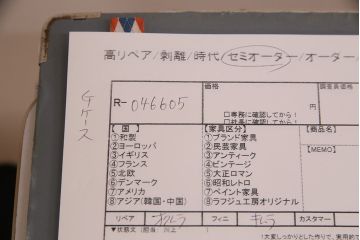 高リペア/剥離/時代/セミオーダー/オーダー/
Gケース
R-046605
価格
円
調査員価格
□専務に確認してから!
□社長に確認してから!
【国】
①和製
②ヨーロッパ
③イギリス
④フランス
⑤北欧
⑥デンマーク
⑦アメリカ
⑧アジア(韓国・中国)
【家具区分】
①ブランド家具
②民芸家具
③アンティーク
④ビンテージ
⑤大正ロマン
⑥昭和レトロ
⑦ペイント家具
⑧ラフジュエ房オリジナル
【商品名】
【MEMO】
リペア
フィニ
キムラ
カスタマー
▼状態文(担当:川上
!大変しっかりとした作りで、実用的で